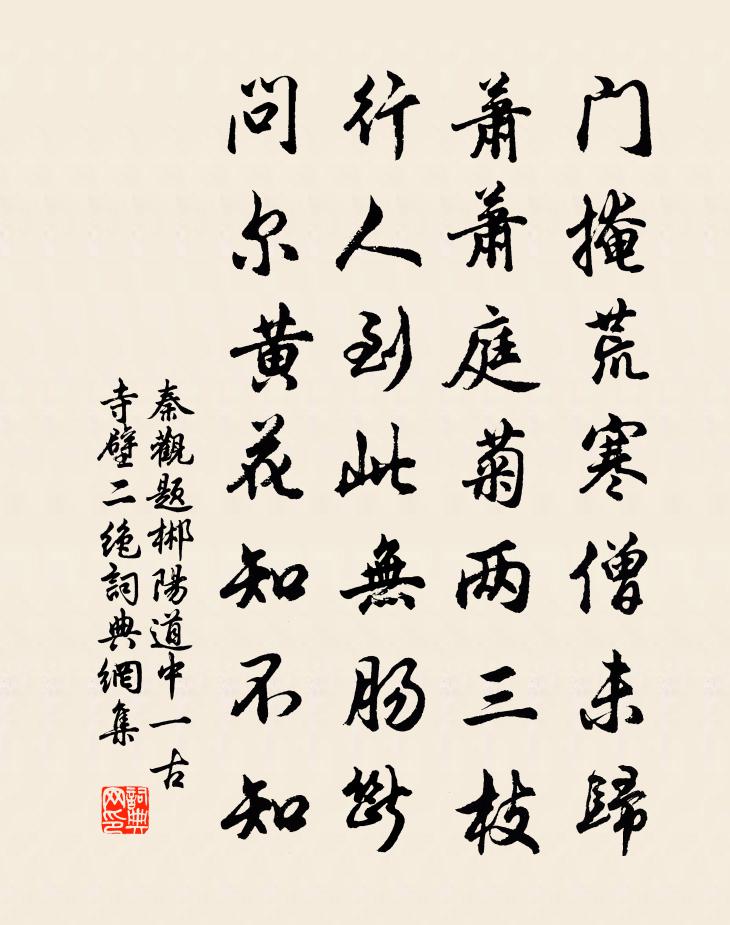 门掩荒寒僧未歸
蕭蕭庭菊两三枝
行人到此無肠斷
问尔黄花知不知
秦觀题郴陽道中一古
寺壁二绝詞典網集
詞典
网印